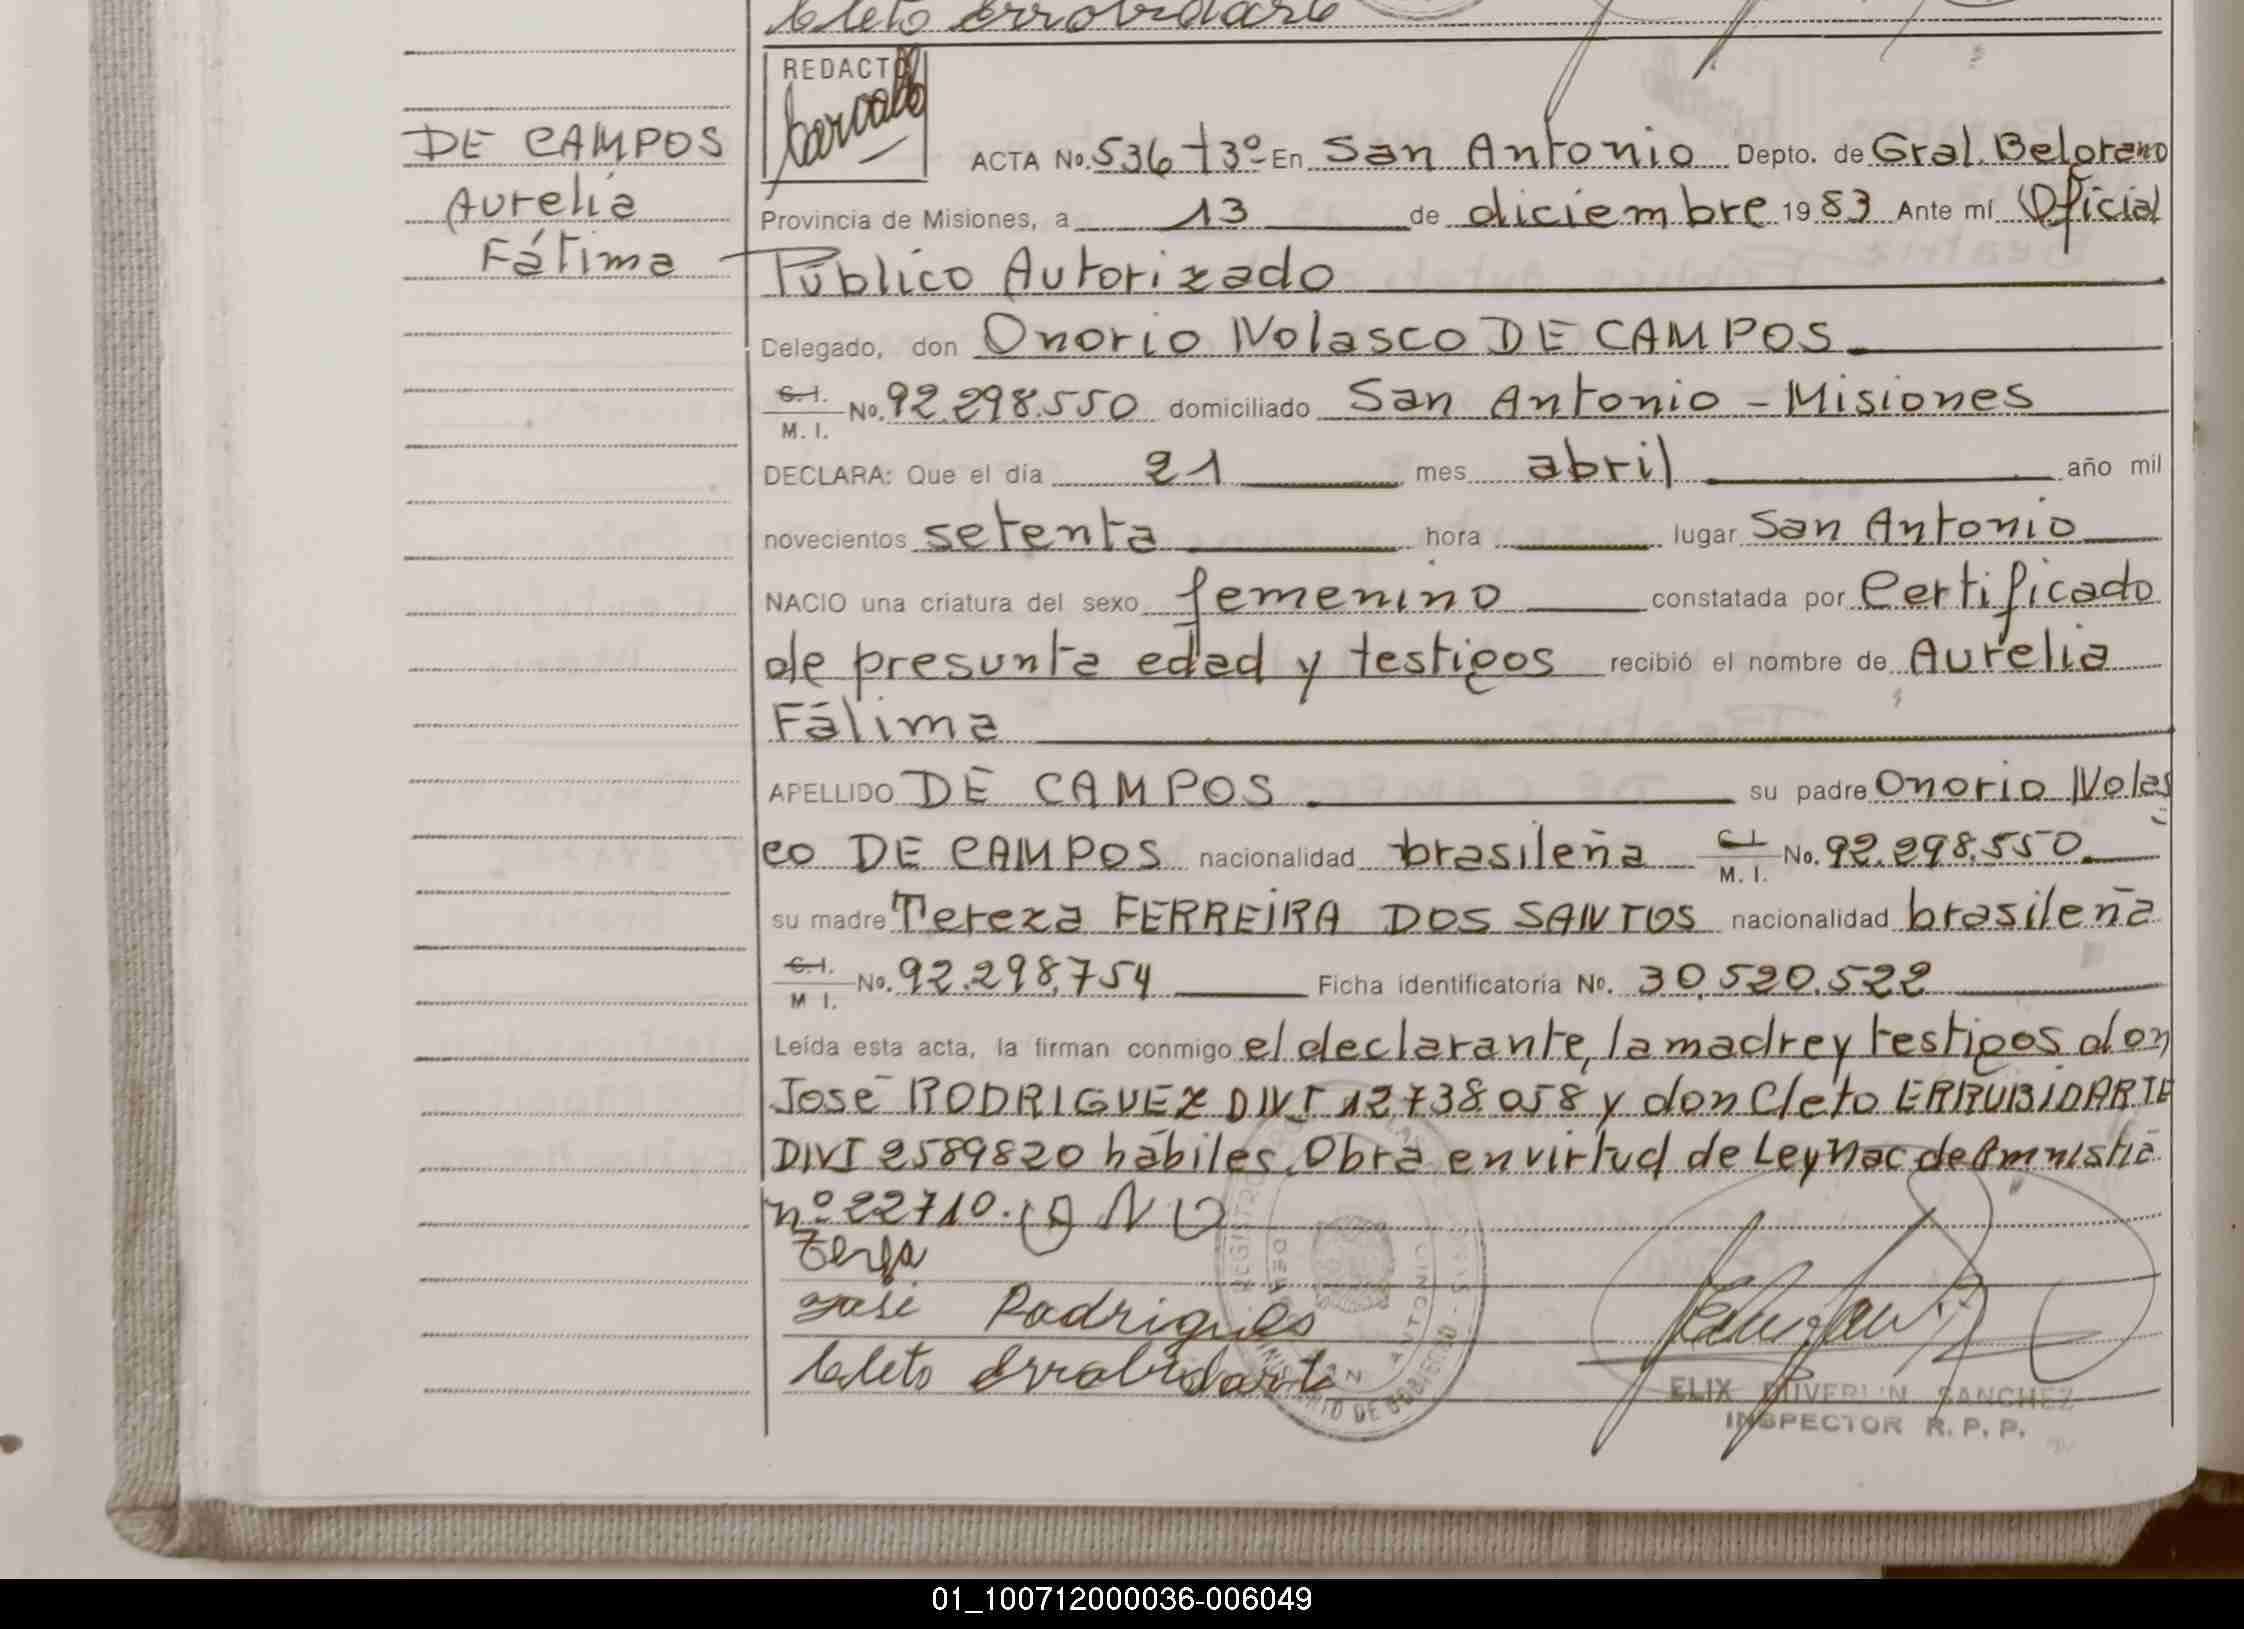 Cleto Errobidarte
REDACTO
DE CAMPOS
Aurelia
Fátima
ACTA No. 536 T3º En San Antonio Depto. de Gral. Belgrano
Provincia de Misiones, a 13 de diciembre 1983 Ante mí Oficial
Público Autorizado
Delegado, don Onorio Nolasco DE CAMPOS
C.I.
M.I. No. 92.298.550 domiciliado San Antonio - Misiones
DECLARA: Que el día 21 mes abril año mil
novecientos setenta hora lugar San Antonio
NACIO una criatura del sexo femenino constatada por Certificado
de presunta edad y testigos recibió el nombre de Aurelia
Fátima
APELLIDO DE CAMPOS su padre Onorio Nolas
co DE CAMPOS nacionalidad brasileña C.I.
M.I. No. 92.298.550
su madre Tereza FERREIRA DOS SANTOS nacionalidad brasileña
C.I.
M I. No. 92.298.754 Ficha identificatoria No. 30.520.522
Leída esta acta, la firman conmigo el declarante, la madre y testigos don
José RODRIGUEZ DNI 12738058 y don Cleto ERRUBIDARTE
DNI 2589820 hábiles. Obra en virtud de Ley Nac de Amnistia
nº 22710.
José Rodrigues
Cleto Errobidarte
SAN ANTONIO
MINISTERIO DE GOBIERNO
ELIX DUVERLIN SANCHEZ
INSPECTOR R. P. P.
01_100712000036-006049